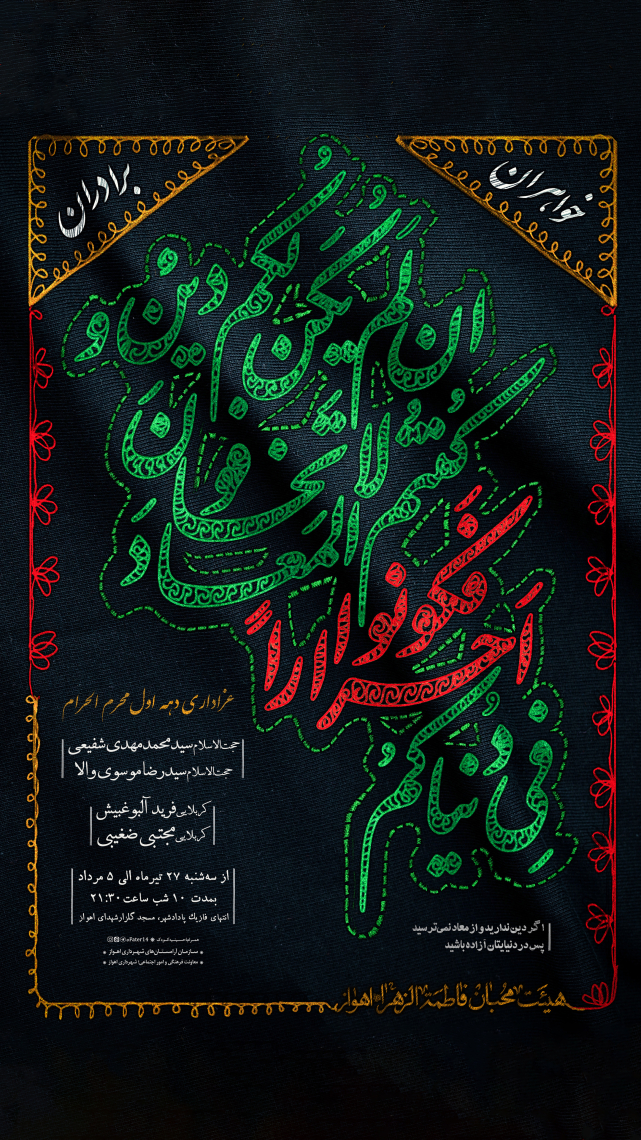 خواهران
برادران
ان لم یکن لکم دین و
کنتم لا تخافون
المعاد
فکونوا
احراراً
فی دنیاکم
عزاداری دهه اول محرم الحرام
حجت‌الاسلام سیدمحمدمهدی شفیعی
حجت‌الاسلام سیدرضا موسوی والا
کربلایی فرید آلبوغبیش
کربلایی مجتبی ضغیبی
از سه‌شنبه ۲۷ تیرماه الی ۵ مرداد
بمدت ۱۰ شب ساعت ۲۱:۳۰
انتهای فازیک پادادشهر، مسجد گلزار شهدای اهواز
اگر دین ندارید و از معاد نمی‌ترسید
پس در دنیایتان آزاده باشید
سازمان آرامستان‌های شهرداری اهواز
معاونت فرهنگی و امور اجتماعی شهرداری اهواز
هیئت محبان فاطمة الزهراء اهواز